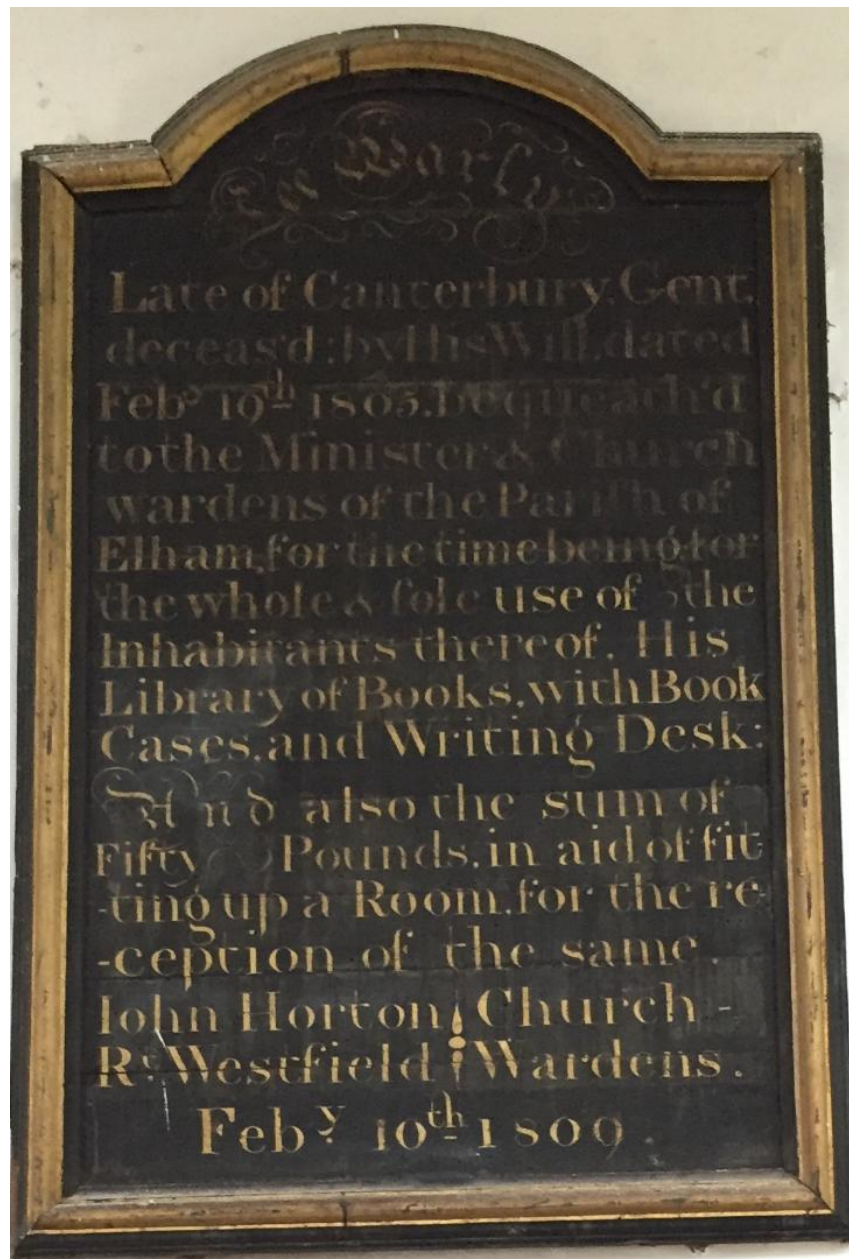 Lee Warly
Late of Canterbury, Gent.
deceas'd; by His Will, dated
Feby 19th 1805, bequeath'd
to the Minister & Church
wardens of the Pariſh of
Elham, for the time being, for
the whole & ſole use of the
Inhabitants thereof. His
Library of Books, with Book
Cases, and Writing Desk:
And also the sum of
Fifty Pounds, in aid of fit
-ting up a Room, for the re
-ception of the same.
Iohn Horton Church -
Rt. Westfield Wardens.
Feby 10th 1809.